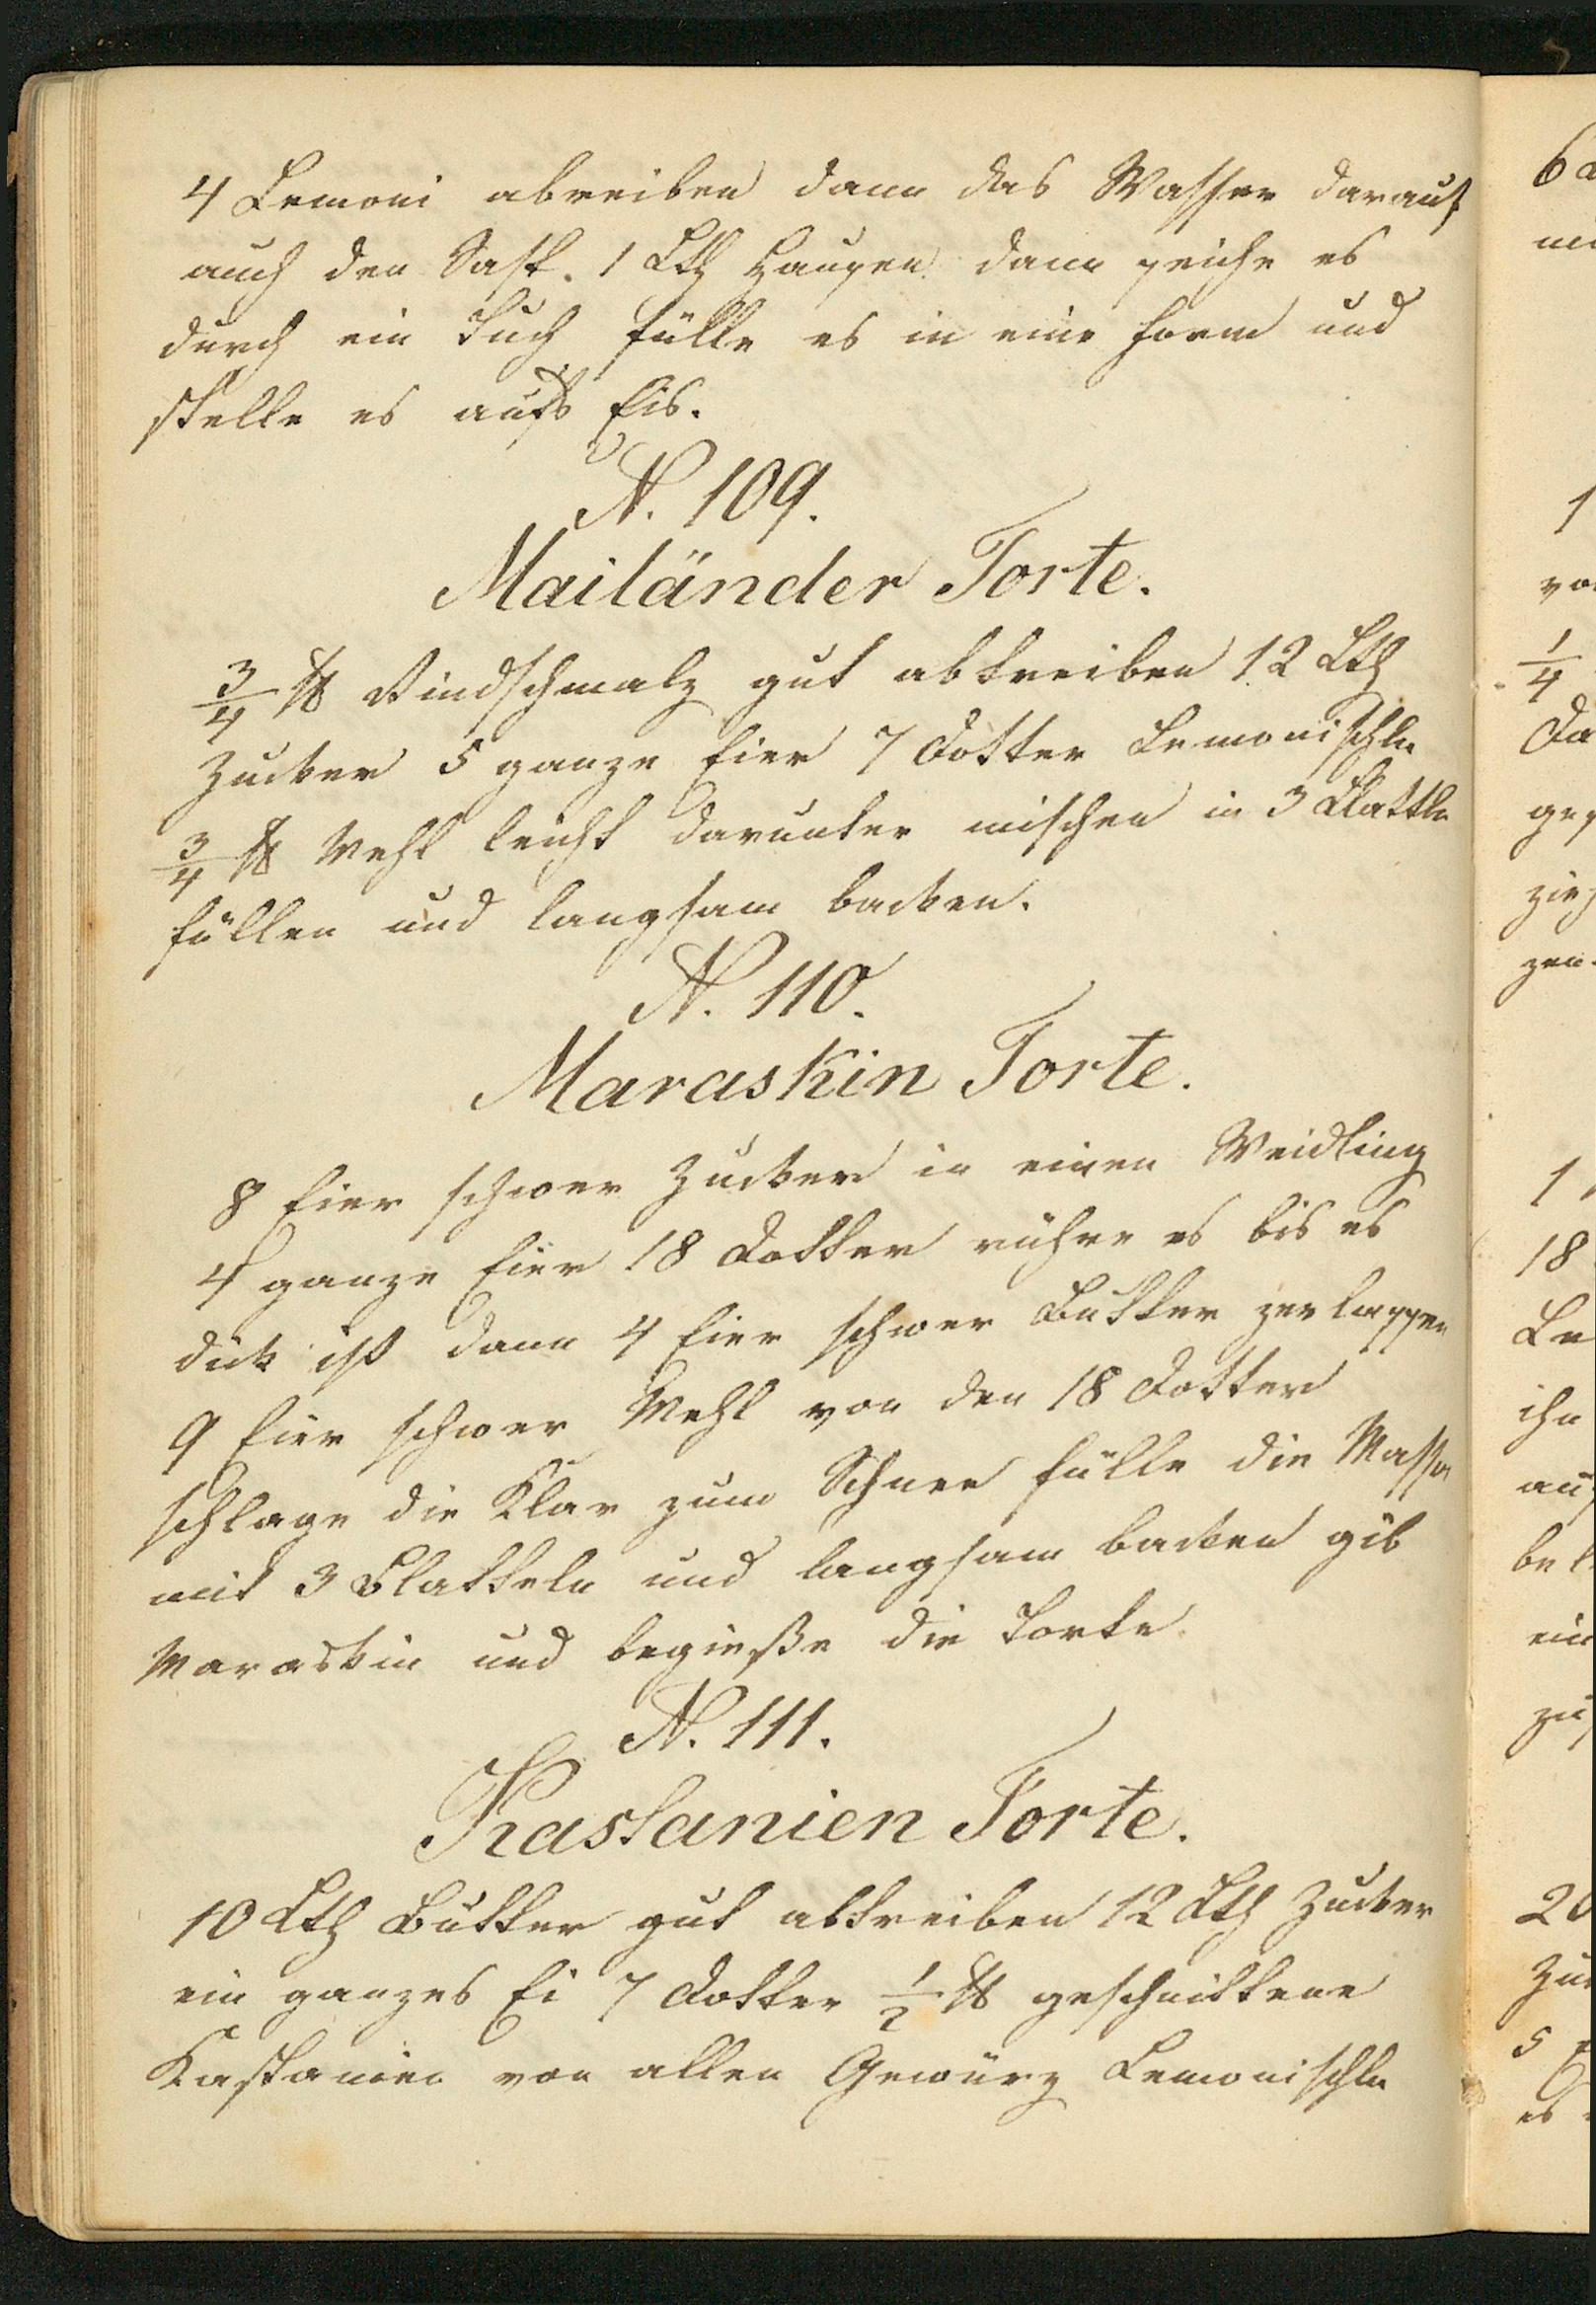 4 Lemoni abreiben dann das Wasser darauf
auch den Saft. 1 Lth Hausen dann seiche es
durch ein Tuch fülle es in eine Form und
stelle es aufs Eis.
N. 109.
Mailänder Torte.
3/4 ℔ Rindschmalz gut abtreiben 12 Lth
Zucker 5 ganze Eier 7 Dotter Lemonischln
3/4 ℔ Mehl leicht darunter mischen in 3 Blattln
füllen und langsam backen.
N. 110.
Maraskin Torte.
8 Eier schwer Zucker in einen Weidling
4 ganze Eier 18 Dotter rühre es bis es
dick ist dann 4 Eier schwer Butter zerlassen
9 Eier schwer Mehl von den 18 Dotter
schlage die Klar zum Schnee fülle die Massa
mit 3 Blatteln und langsam backen gib
Maraskin und begieße die Torte.
N. 111.
Kastanien Torte.
10 Lth Butter gut abtreiben 12 Lth Zucker
ein ganzes Ei 7 Dotter 1/2 ℔ geschnittene
Kastanien von allen Gewürz Lemonischln